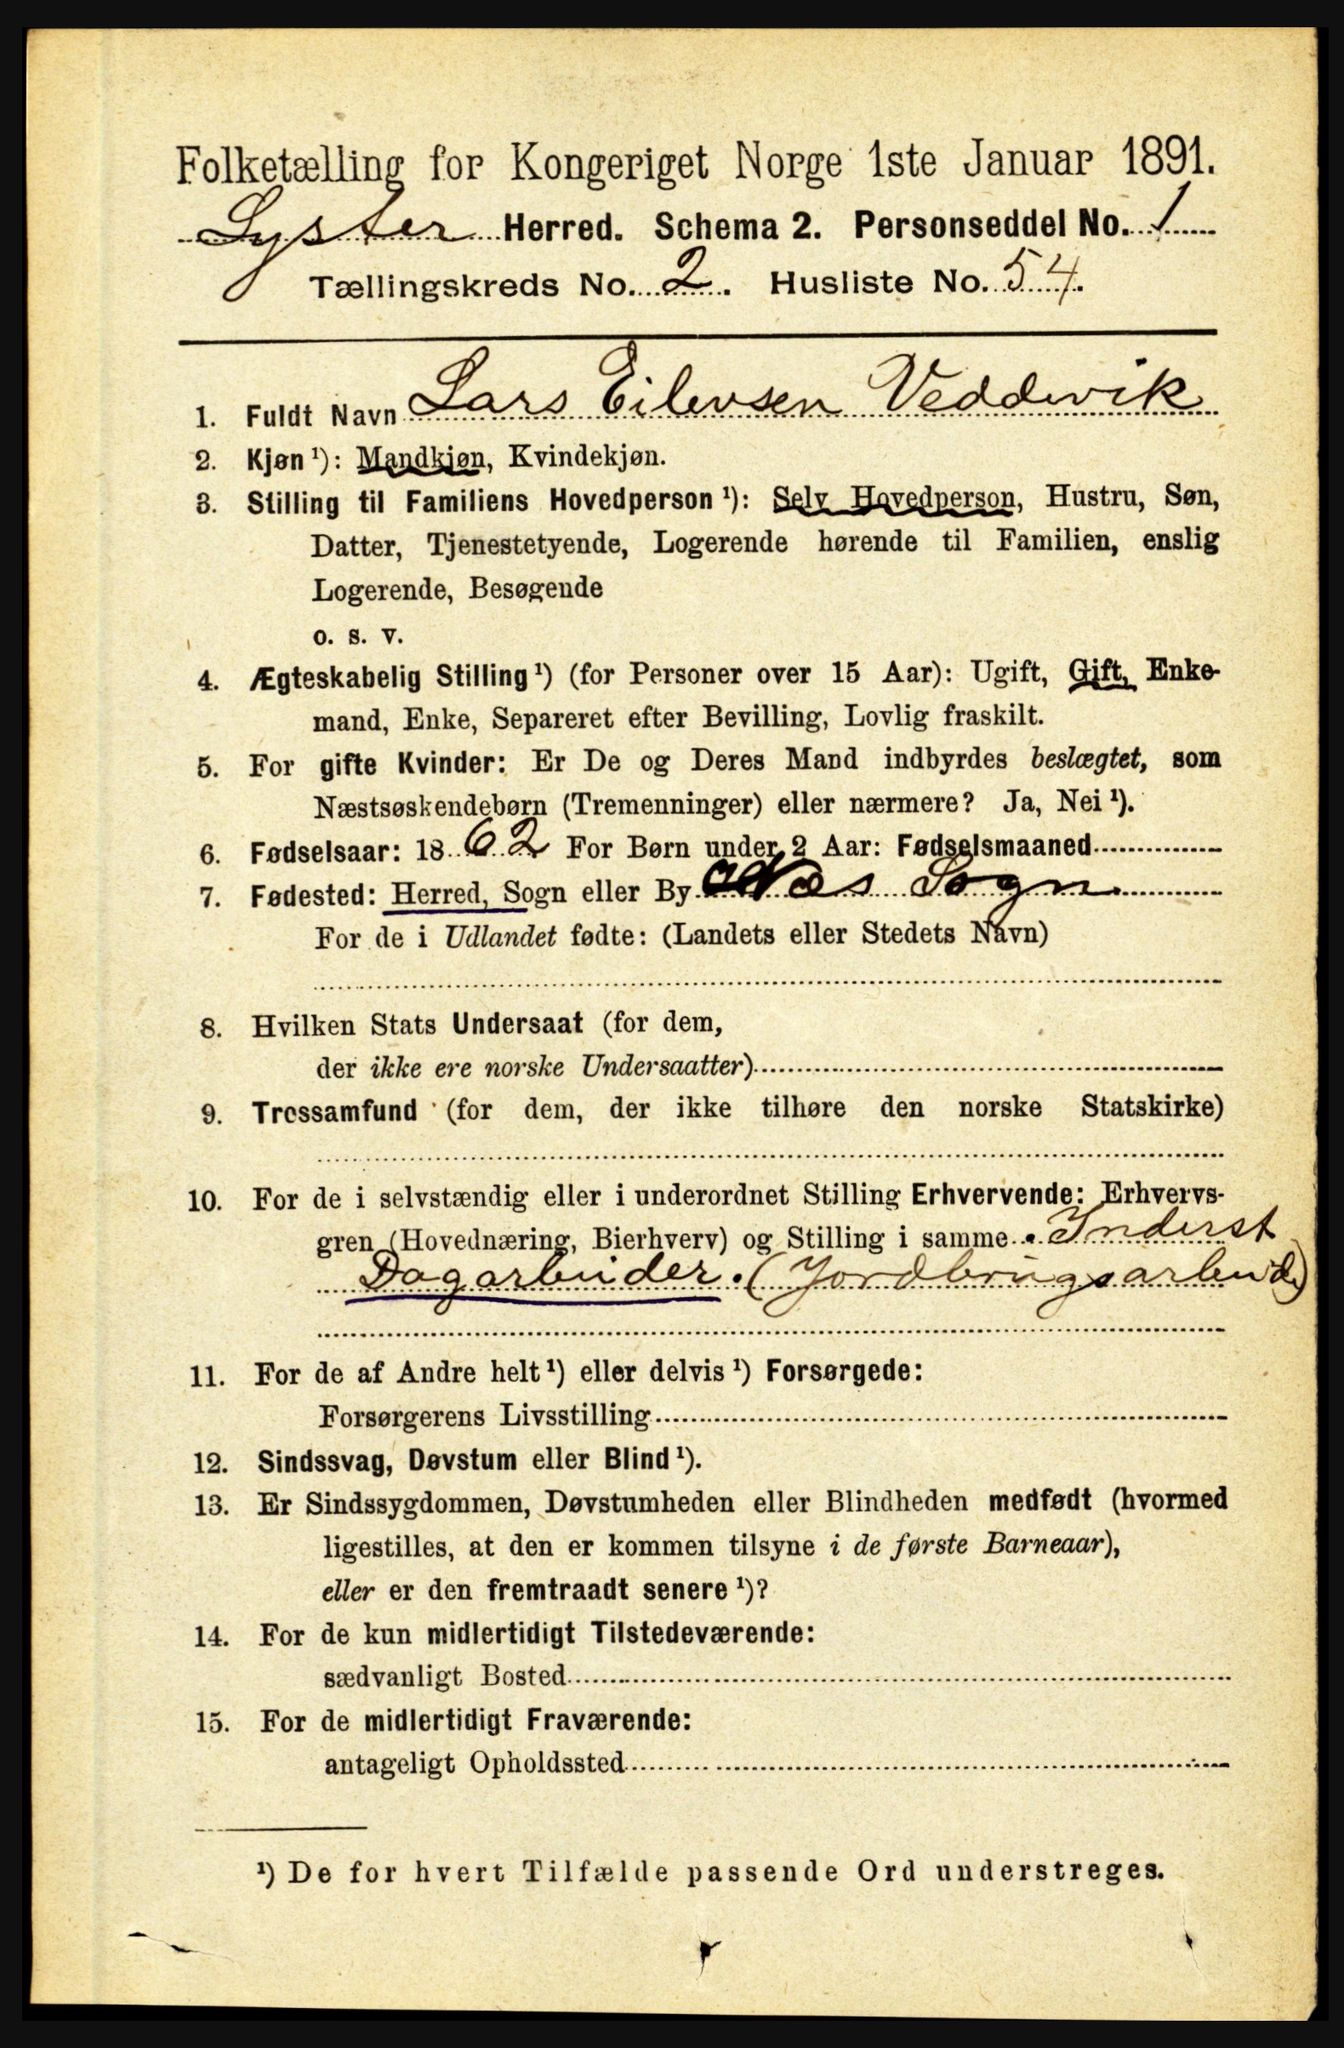 Folketælling for Kongeriget Norge 1ste Januar 1891.
Lyster Herred. Schema 2. Personseddel No. 1
Tællingskreds No. 2. Husliste No. 54.
1. Fuldt Navn Lars Eilevsen Veddevik
2. Kjøn ¹): Mandkjøn, Kvindekjøn.
3. Stilling til Familiens Hovedperson ¹): Selv Hovedperson, Hustru, Søn,
Datter, Tjenestetyende, Logerende hørende til Familien, enslig
Logerende, Besøgende
o. s. v.
4. Ægteskabelig Stilling ¹) (for Personer over 15 Aar): Ugift, Gift, Enke-
mand, Enke, Separeret efter Bevilling, Lovlig fraskilt.
5. For gifte Kvinder: Er De og Deres Mand indbyrdes beslægtet, som
Næstsøskendebørn (Tremenninger) eller nærmere? Ja, Nei ¹).
6. Fødselsaar: 1862 For Børn under 2 Aar: Fødselsmaaned
7. Fødested: Herred, Sogn eller By Næs Sogn
For de i Udlandet fødte: (Landets eller Stedets Navn)
8. Hvilken Stats Undersaat (for dem,
der ikke ere norske Undersaatter)
9. Trossamfund (for dem, der ikke tilhøre den norske Statskirke)
10. For de i selvstændig eller i underordnet Stilling Erhvervende: Erhvervs-
gren (Hovednæring, Bierhverv) og Stilling i samme. Inderst
Dagarbeider. (Jordbrugsarbeid)
11. For de af Andre helt ¹) eller delvis ¹) Forsørgede:
Forsørgerens Livsstilling
12. Sindssvag, Døvstum eller Blind ¹).
13. Er Sindssygdommen, Døvstumheden eller Blindheden medfødt (hvormed
ligestilles, at den er kommen tilsyne i de første Barneaar),
eller er den fremtraadt senere ¹)?
14. For de kun midlertidigt Tilstedeværende:
sædvanligt Bosted
15. For de midlertidigt Fraværende:
antageligt Opholdssted
¹) De for hvert Tilfælde passende Ord understreges.